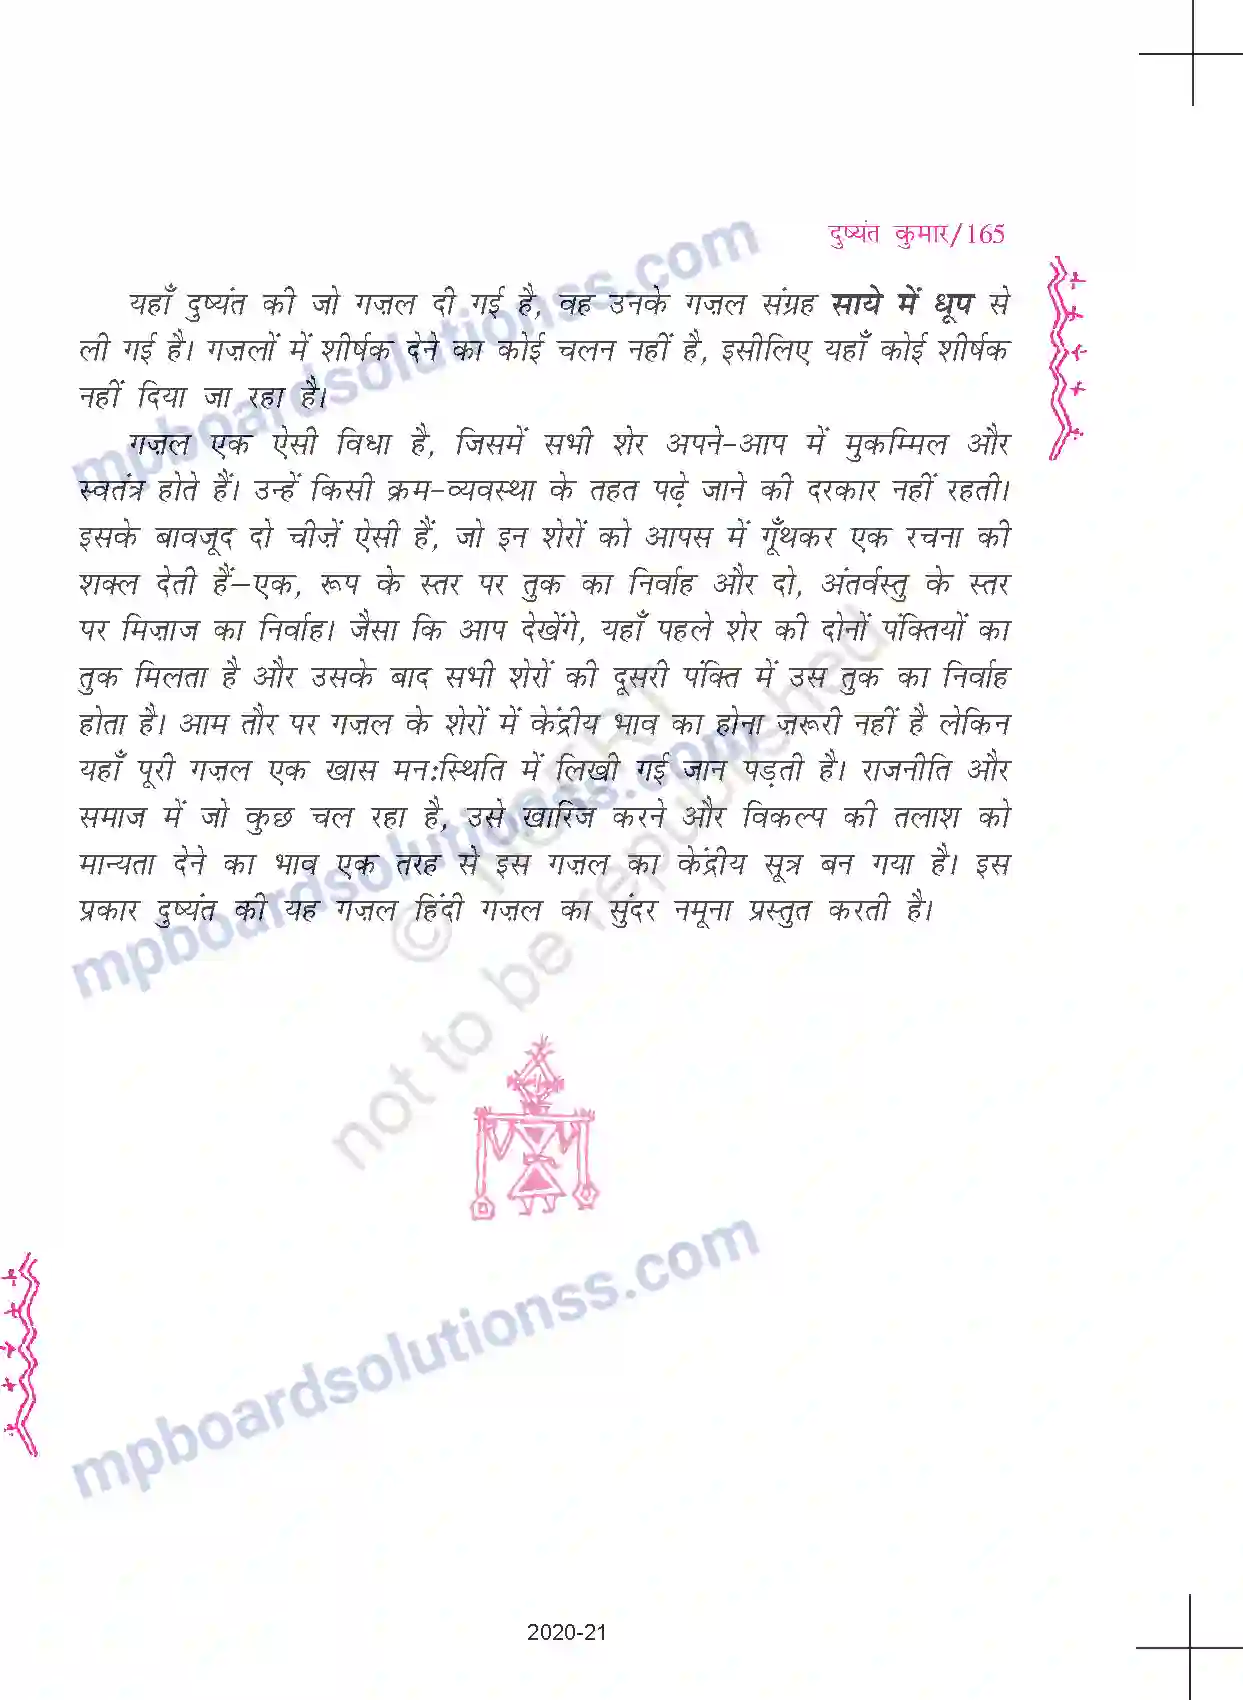 दुष्यंत कुमार/165
यहाँ दुष्यंत की जो गज़ल दी गई है, वह उनके गज़ल संग्रह साये में धूप से
ली गई है। गज़लों में शीर्षक देने का कोई चलन नहीं है, इसीलिए यहाँ कोई शीर्षक
नहीं दिया जा रहा है।
गज़ल एक ऐसी विधा है, जिसमें सभी शेर अपने-आप में मुकम्मिल और
स्वतंत्र होते हैं। उन्हें किसी क्रम-व्यवस्था के तहत पढ़े जाने की दरकार नहीं रहती।
इसके बावजूद दो चीज़ें ऐसी हैं, जो इन शेरों को आपस में गूँथकर एक रचना की
शक्ल देती हैं–एक, रूप के स्तर पर तुक का निर्वाह और दो, अंतर्वस्तु के स्तर
पर मिज़ाज का निर्वाह। जैसा कि आप देखेंगे, यहाँ पहले शेर की दोनों पंक्तियों का
तुक मिलता है और उसके बाद सभी शेरों की दूसरी पंक्ति में उस तुक का निर्वाह
होता है। आम तौर पर गज़ल के शेरों में केंद्रीय भाव का होना ज़रूरी नहीं है लेकिन
यहाँ पूरी गज़ल एक खास मनःस्थिति में लिखी गई जान पड़ती है। राजनीति और
समाज में जो कुछ चल रहा है, उसे खारिज करने और विकल्प की तलाश को
मान्यता देने का भाव एक तरह से इस गज़ल का केंद्रीय सूत्र बन गया है। इस
प्रकार दुष्यंत की यह गज़ल हिंदी गज़ल का सुंदर नमूना प्रस्तुत करती है।
mpboardsolutionss.com
mpboardsolutionss.com
mpboardsolutionss.com
© NCERT
not to be republished
2020-21